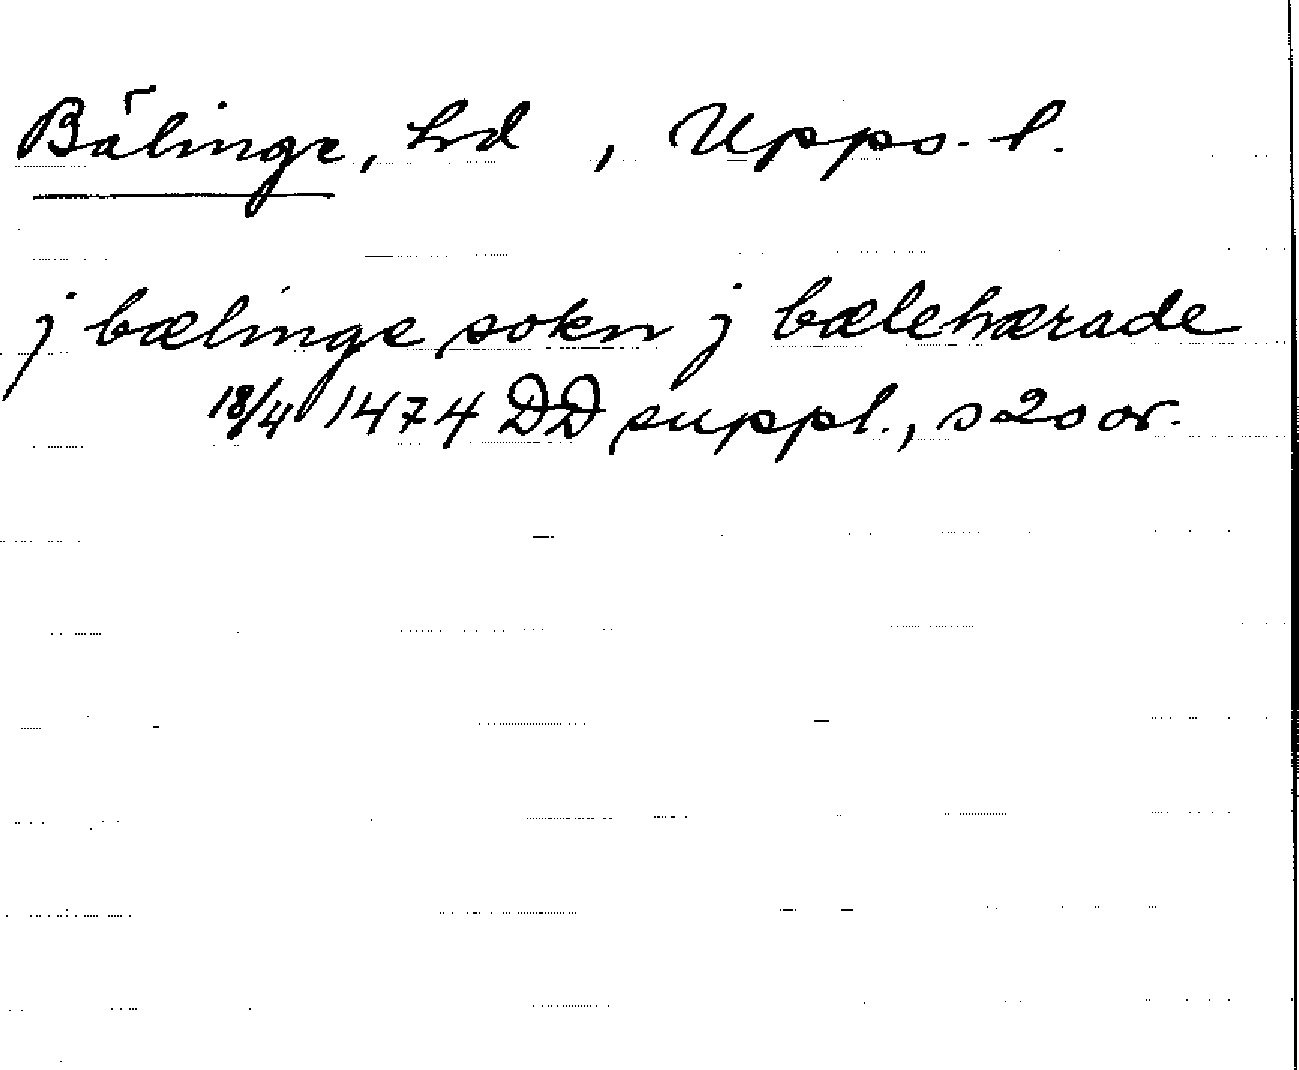 Bälinge, hd , Upps. l.
j bælinge sokn j bælehærade
18/4 1474 DD suppl., s 20 or.